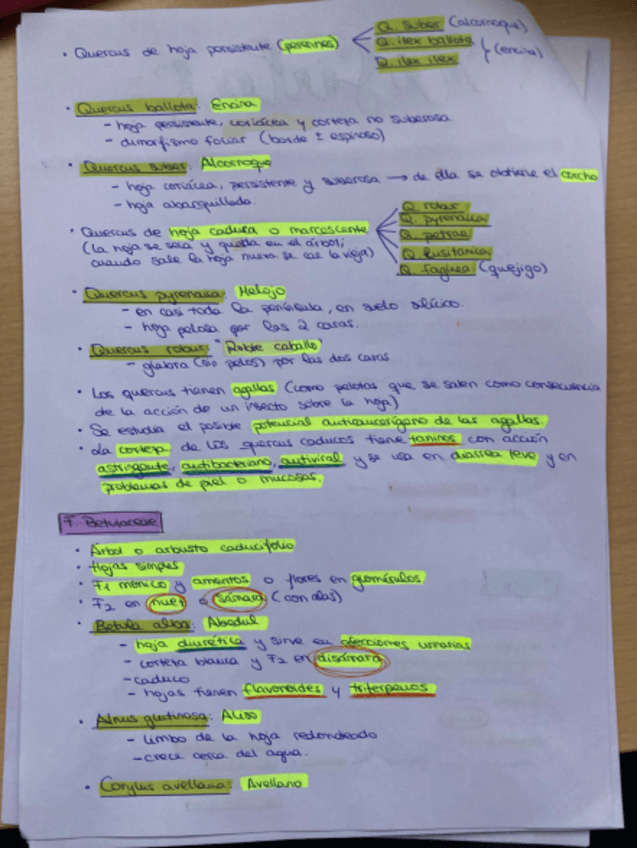 Q. suber (alcornoque)
· Quercus de hoja persistente (perennes)
Q. ilex ballota
Q. ilex ilex
(encina)
· Quercus ballota: Encina
- hoja persistente, coriácea y corteza no suberosa
- dimorfismo foliar (borde ± espinoso)
· Quercus suber: Alcornoque
- hoja coriácea, persistente y suberosa → de ella se obtiene el corcho
- hoja abarquillada.
· Quercus de hoja caduca o marcescente
(la hoja se seca y queda en el árbol;
cuando sale la hoja nueva se cae la vieja)
Q. robur
Q. pyrenaica
Q. petrae
Q. lusitanica
Q. faginea (quejigo)
· Quercus pyrenaica: Melojo
- en casi toda la península, en suelo silíceo.
- hoja pelosa por las 2 caras.
· Quercus robur: "Roble caballo"
- glabra (sin pelos) por las dos caras
· Los quercus tienen agallas (como pelotas que se salen como consecuencia
de la acción de un insecto sobre la hoja)
· Se estudia el posible potencial anticancerígeno de las agallas.
· La corteza de los quercus caducos tiene taninos con acción
astringente, antibacteriano, antiviral y se usa en diarrea leve y en
problemas de piel o mucosas.
F. Betulaceae
· Árbol o arbusto caducifolio
· Hojas simples
· F1 monoico y amentos o flores en glomérulos
· F2 en nuez o sámara (con alas)
· Betula alba: Abedul
- hoja diurética y sirve en afecciones urinarias
- corteza blanca y F2 en disámara
- caduco
- hojas tienen flavonoides y triterpenos
· Alnus glutinosa: Aliso
- limbo de la hoja redondeado
- crece cerca del agua.
· Corylus avellana: Avellano